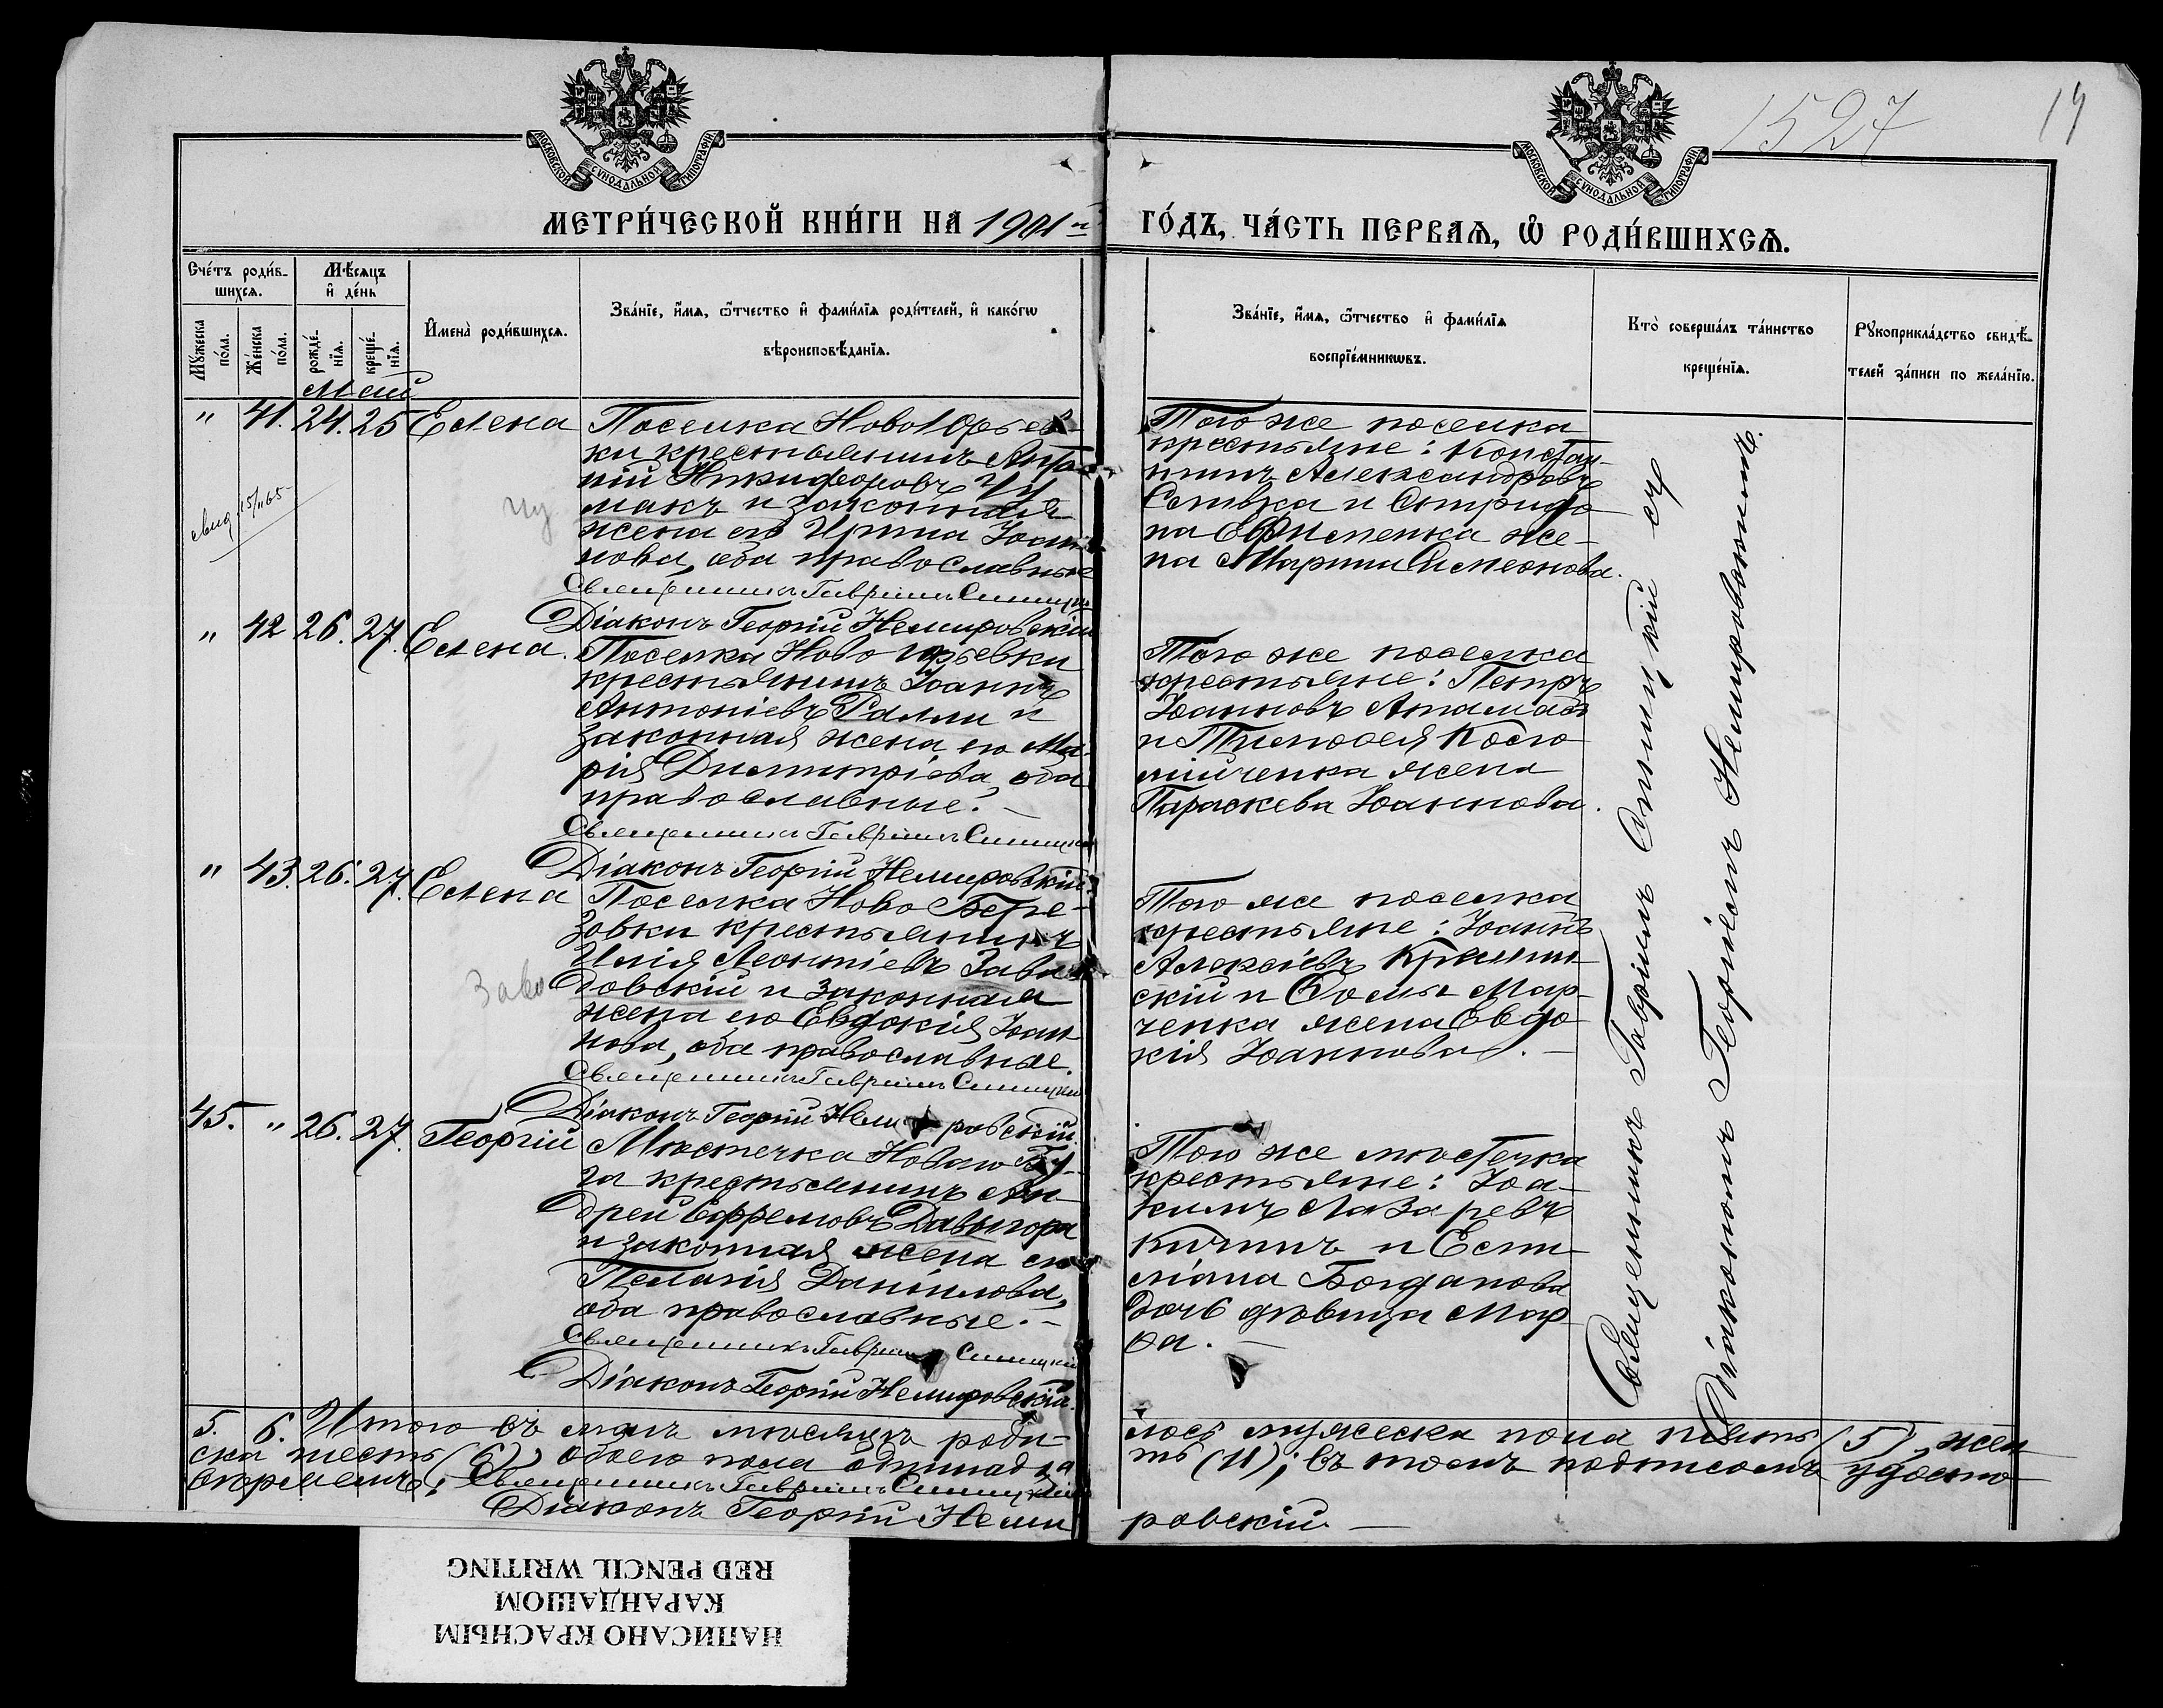 1527
19
МОСКОВСКОЙ СѴНОДАЛЬНОЙ ТИПОГРАФІИ
МОСКОВСКОЙ СѴНОДАЛЬНОЙ ТИПОГРАФІИ
МЕТРИ́ЧЕСКОЙ КНИ́ГИ НА 1901 й ГО́ДЪ, ЧА́СТЬ ПЕРВАѦ, Ѡ҆ РОДИ́ВШИХСѦ.
Сче́тъ роди́в-
шихсѧ.
Мꙋ́жеска по́ла.
Же́нска по́ла.
Мѣ́сѧцъ
и҆ де́нь
рожде́нїѧ.
креще́нїѧ.
И҆мена̀ роди́вшихсѧ.
Зва́нїе, и҆́мѧ, ѻ҆́тчество и҆ фами́лїѧ роди́телей, и҆ како́гѡ
вѣроисповѣ́данїѧ.
Зва́нїе, и҆́мѧ, ѻ҆́тчество и҆ фами́лїѧ
воспрїе́мникѡвъ.
Кто̀ соверша́лъ та́инство
креще́нїѧ.
Рꙋкоприкла́дство свидѣ́-
телей за́писи по жела́нїю.
Май
" 41. 24. 25 Елена
Поселка Ново Юрьев-
ки крестьянинъ Анто-
ній Никифоровъ Чу-
макъ и законная
жена его Ирина Іоан-
нова, оба православные
Священникъ Гавріилъ Синицкій
Діаконъ Георгій Немировскій
Того же поселка
крестьяне: Констан-
тинъ Александровъ
Сливка и Спиридо-
на Ефименка же-
на Марина Симеонова.
свид 15/II 65
чу
" 42 26. 27. Елена.
Поселка Ново Юрьевки
крестьянинъ Іоаннъ
Антоніевъ Ралли и
законная жена его Ма-
рія Димитріева, оба
православные. —
Священникъ Гавріилъ Синицкій
Діаконъ Георгій Немировскій
Того же поселка
крестьяне: Петръ
Іоанновъ Атамасъ
и Тимофея Косто
жена
Параскева Іоаннова.
" 43. 26. 27. Елена
Поселка Ново Бере-
зовки крестьянинъ
Илія Леонтіевъ Зава-
довскій и законная
жена его Евдокія Іоан-
нова, оба православные.
Священникъ Гавріилъ Синицкій
Діаконъ Георгій Немировскій.
Того же поселка
крестьяне: Іоаннъ
Алексіевъ
скій и Ѳомы Мар-
ченка жена Евдо-
кія Іоаннова. —
Заво
45. " 26. 27. Георгій
Мѣстечка Новаго Бу-
га крестьянинъ Ан-
дрей Ефремовъ Давыгора
и законная жена его
Пелагія Даніилова,
оба православные. —
Священникъ Гавріилъ Синицкій
Діаконъ Георгій Немировскій.
Того же мѣстечка
крестьяне: Іоа-
кимъ Лазаревъ
Кичинъ и Еми-
ліана Богданова
дочь дѣвица Мар-
ѳа. —
Священникъ Гавріилъ Синицкій съ
Діакономъ Георгіемъ Немировскимъ.
5. 6. Итого въ маѣ мѣсяцѣ роди- лось мужеска пола пять (5), жен
ска шесть (6), обоего пола одинадца ть (11); въ томъ подписомъ удосто
вѣряемъ: Священникъ Гавріилъ Синицкій
Діаконъ Георгій Неми ровскій. —
НАПИСАНО КРАСНЫМ
КАРАНДАШОМ
RED PENCIL WRITING